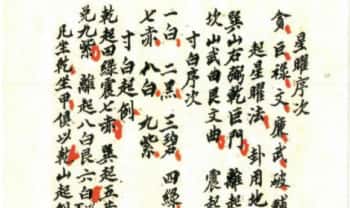 星曜序次
貪巨祿文廉武破輔
起星曜法 卦用地
巽山右弼乾巨門 離起
坎山武曲艮文曲 震起
寸白序次
一白 二黑 三碧 四綠
七赤 八白 九紫
寸白起例
乾起四綠震七赤 巽起五
兌九紫 離起八白艮六白
凡坐乾坐甲俱以乾山起例